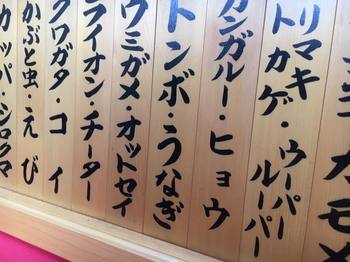 カモメ
リマキ
トカゲ・ウーパー
ルーパー
カンガルー・ヒョウ
トンボ・うなぎ
ウミガメ・オットセイ
ライオン・チーター
クワガタ・コイ
かぶと虫・えび
カッパ・シロクマ